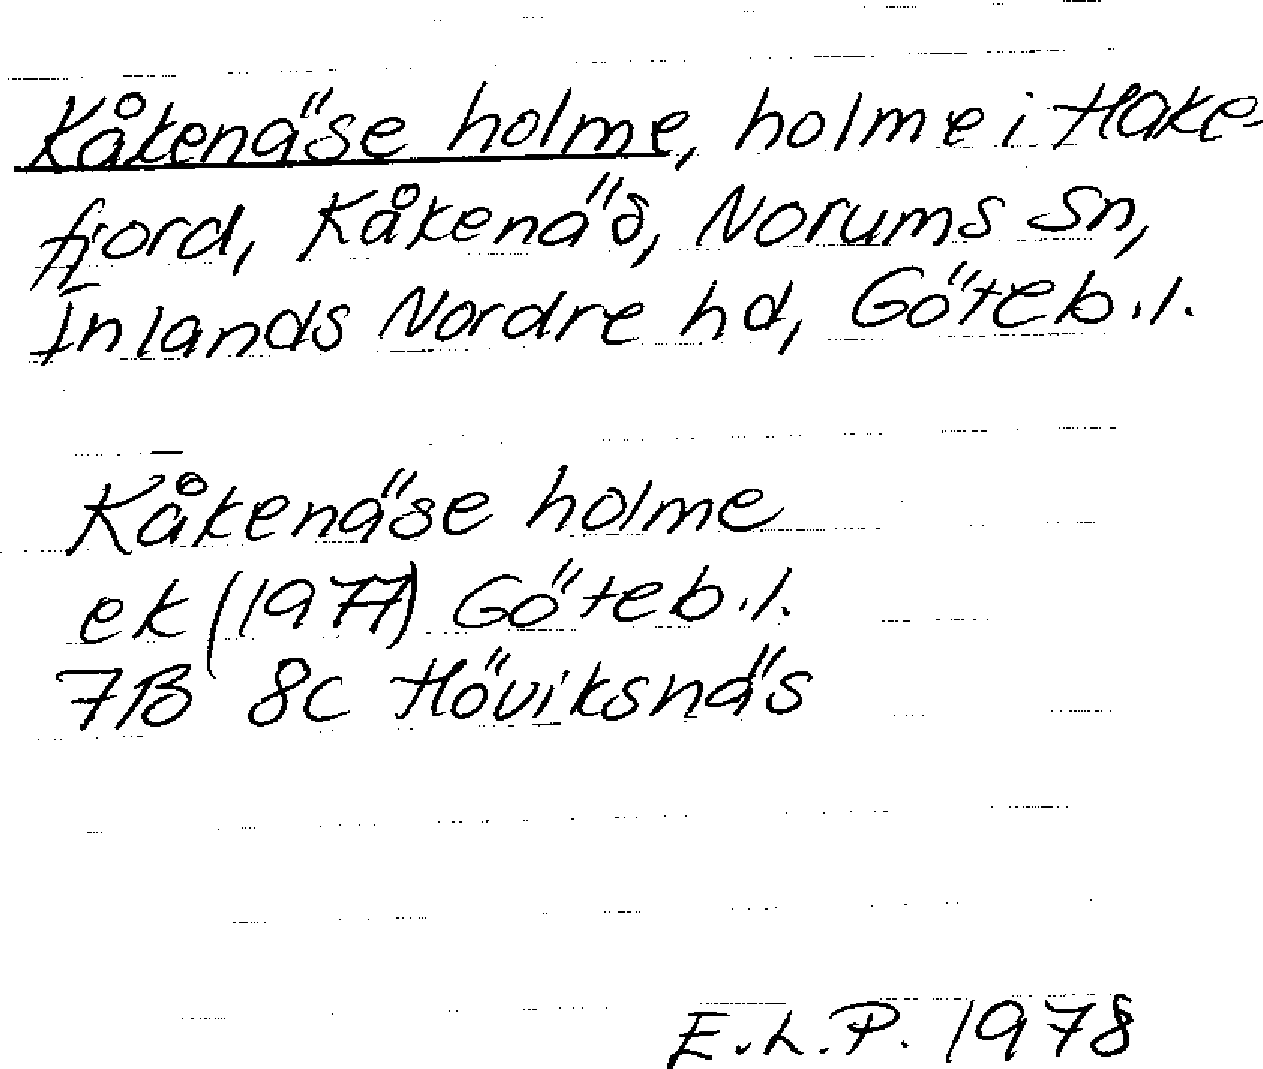 Kåkenäse holme, holme i Hake-
fjord, Kåkenäs, Norums sn,
Inlands Nordre hd, Göteb.l.
Kåkenäse holme
ek (1977) Göteb.l.
7B 8c Höviksnäs
E.L.P. 1978